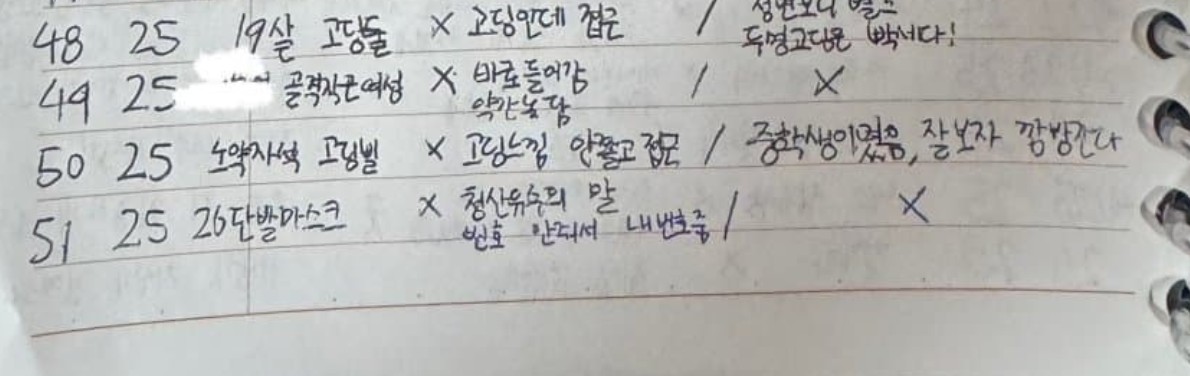 48 25 19살 고딩들 X 고딩인데 접근 /
두명고딩은 빡세다!
49 25 골격작은여성 X 바로들어감 / X
약간농담
50 25 노약자석 고딩삘 X 고딩느낌 안쫄고접근 / 중학생이였음, 잘보자 깜방간다
51 25 26단발마스크 X 청산유수의 말 / X
번호 안줘서 내번호줌